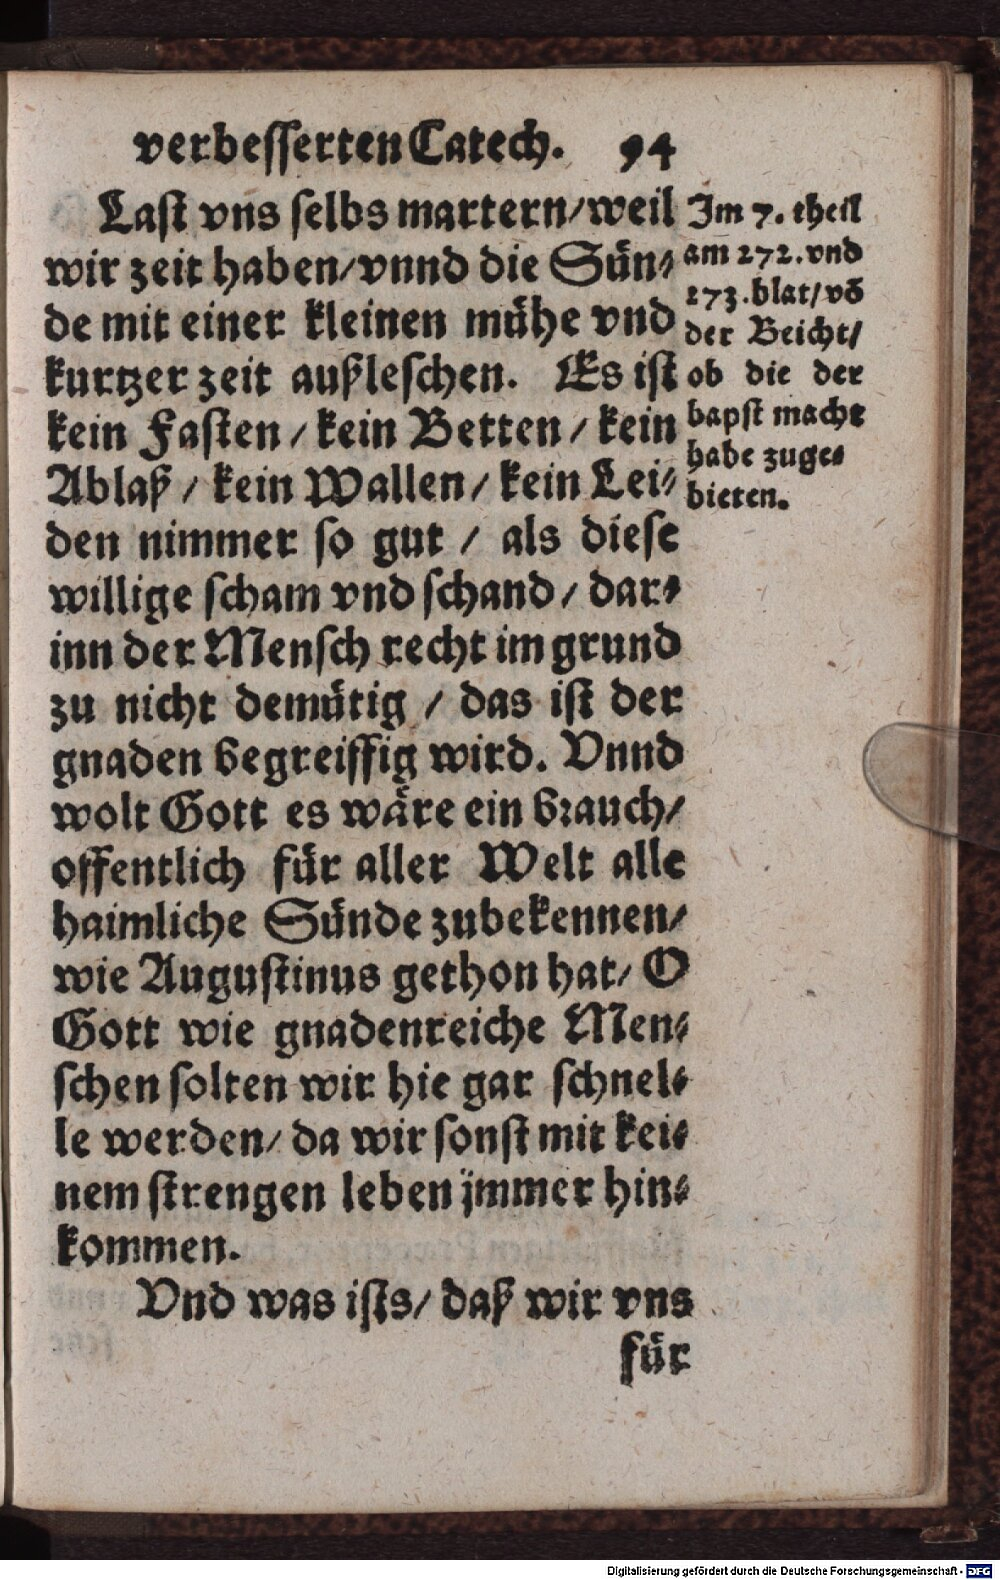 verbesserten Catech. 94
Last vns selbs martern/weil
wir zeit haben/vnnd die Sün⸗
de mit einer kleinen mühe vnd
kurtzer zeit außleschen. Es ist
kein Fasten/kein Betten/kein
Ablaß/kein Wallen/kein Lei⸗
den nimmer so gut/als diese
willige scham vnd schand/dar⸗
inn der Mensch recht im grund
zu nicht demütig/das ist der
gnaden begreiffig wird. Vnnd
wolt Gott es wäre ein brauch/
offentlich für aller Welt alle
haimliche Sünde zubekennen/
wie Augustinus gethon hat/O
Gott wie gnadenreiche Men⸗
schen solten wir hie gar schnel⸗
le werden/da wir sonst mit kei⸗
nem strengen leben jmmer hin⸗
kommen.
Vnd was ists/daß wir vns
für
Im 7. theil
am 272. vnd
273. blat/võ
der Beicht/
ob die der
bapst macht
habe zuge⸗
bieten.
Digitalisierung gefördert durch die Deutsche Forschungsgemeinschaft - DFG